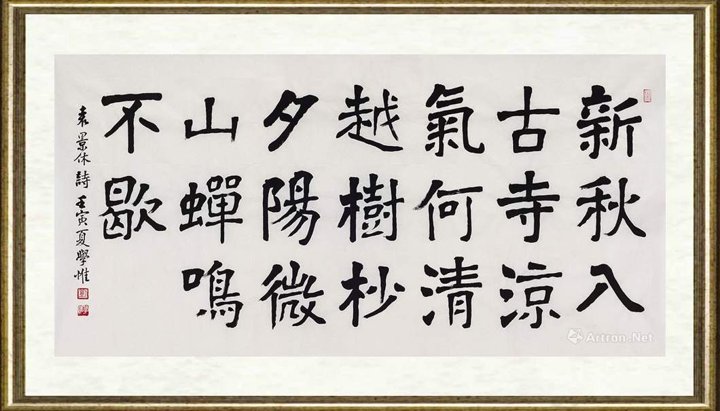 新秋入
古寺涼
氣何清
越樹杪
夕陽微
山蟬鳴
不歇
袁景休詩 壬寅夏學惟
Artron.Net